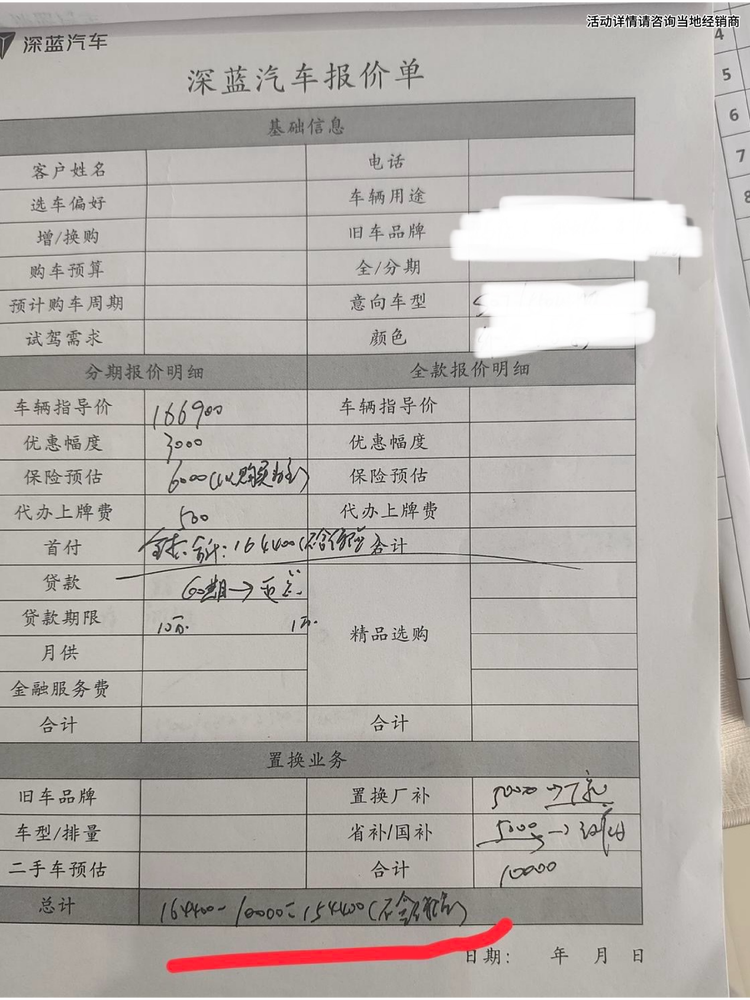 活动详情请咨询当地经销商
深蓝汽车
4
5
6
7
8
深蓝汽车报价单
基础信息
客户姓名 电话
选车偏好 车辆用途
增/换购 旧车品牌
购车预算 全/分期
预计购车周期 意向车型
试驾需求 颜色
分期报价明细 全款报价明细
车辆指导价 166900 车辆指导价
优惠幅度 3000 优惠幅度
保险预估 6000 保险预估
代办上牌费 500 代办上牌费
首付 合计:164400(不含 合计
贷款 60期→
贷款期限 10万. 1万. 精品选购
月供
金融服务费
合计 合计
置换业务
旧车品牌 置换厂补 5000→
车型/排量 省补/国补 5000→
二手车预估 合计 10000
总计 164400-10000=154400(不含
日期: 年 月 日